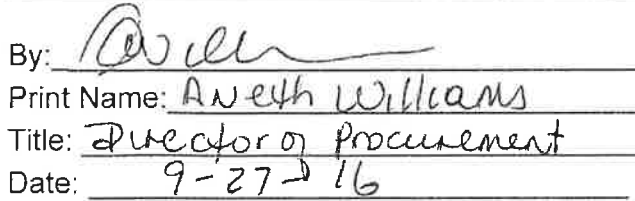 By:
Print Name: ANeth Williams
Title: Director of Procurement
Date: 9-27-16